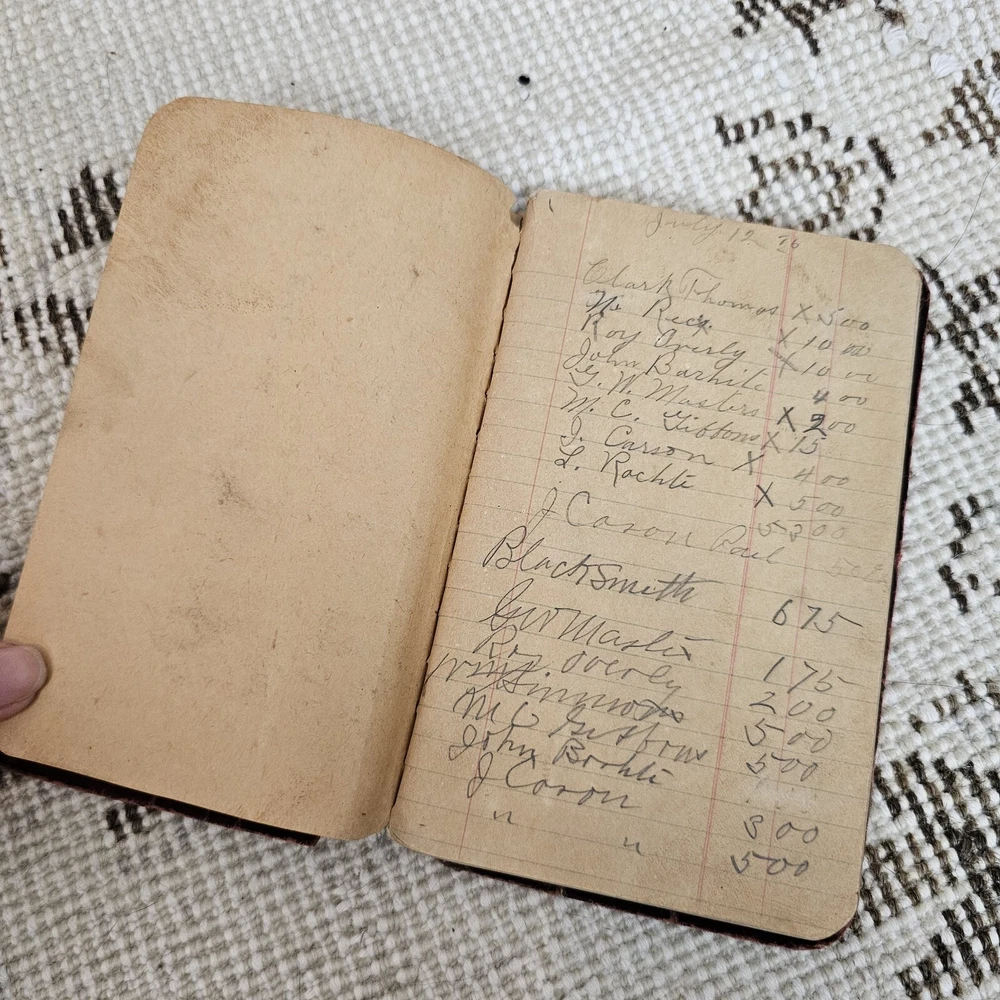 July 12 26
Clark Thomas X 5 00
X 10 00
Roy Overly X 10 00
John 4 00
G. W. Masters X 2 00
M. C. Gibbons X 15
J. Carson X 4 00
L. Rachte X 5 00
53 00
J Carson Paul
BlackSmith 6 75
Geo Master 1 75
Roy Overly 2 00
Wm Simmons 5 00
M C Gibbons 5 00
John
J Caron 3 00
" " 5 00